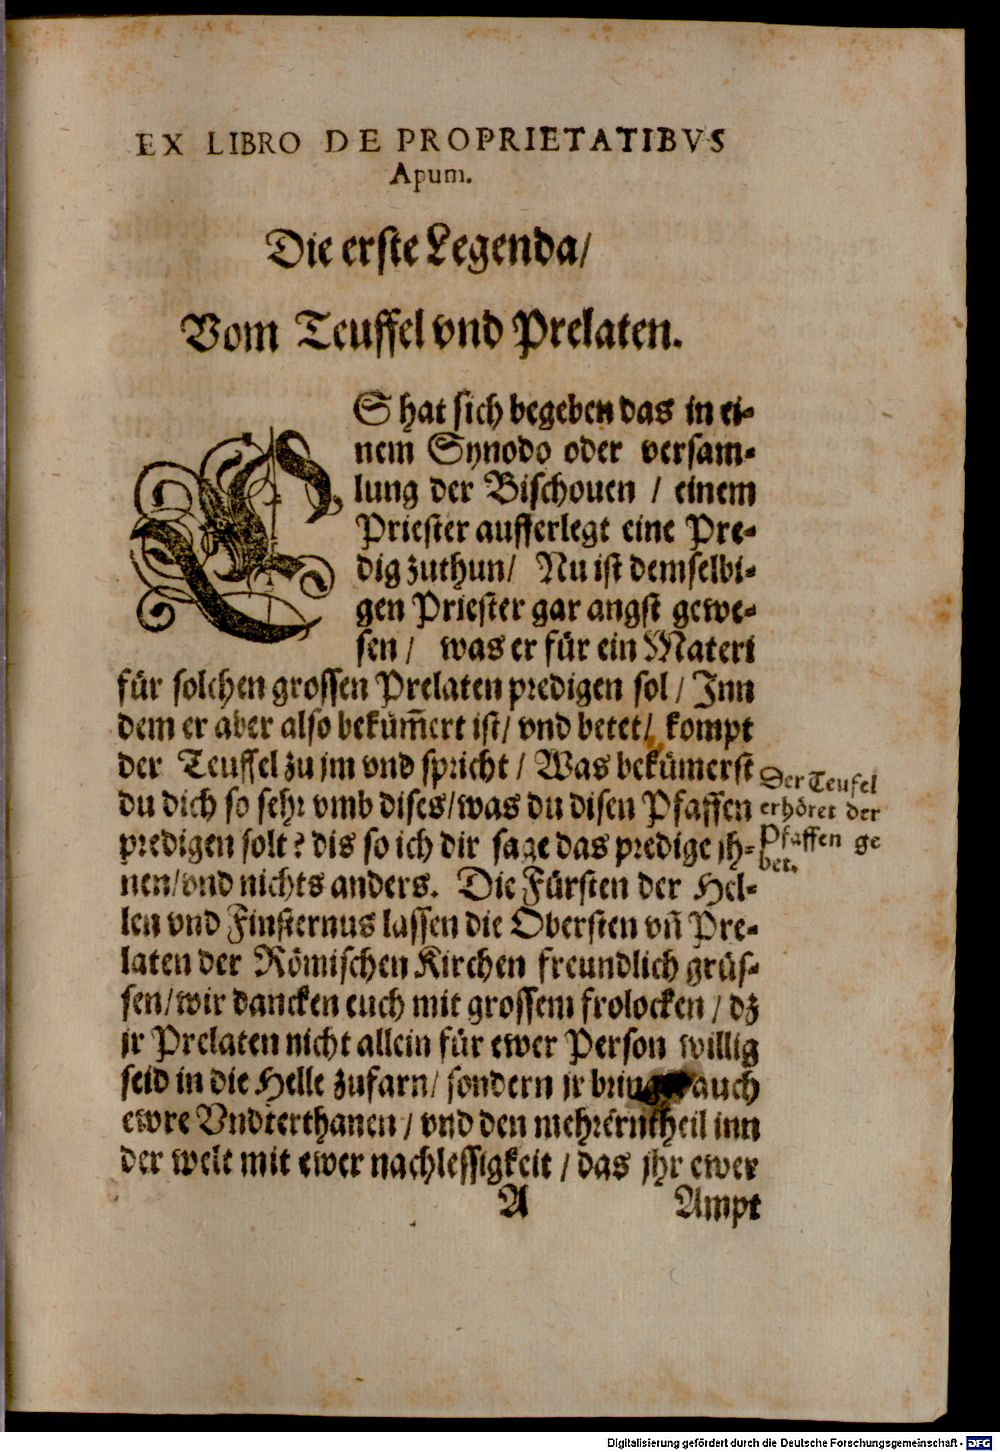 EX LIBRO DE PROPRIETATIBVS
Apum.
Die erste Legenda/
Vom Teuffel vnd Prelaten.
ES hat sich begeben das in ei-
nem Synodo oder versam-
lung der Bischouen / einem
Priester aufferlegt eine Pre-
dig zuthun/ Nu ist demselbi-
gen Priester gar angst gewe-
sen / was er für ein Materi
für solchen grossen Prelaten predigen sol / Inn
dem er aber also bekům̃ert ist/ vnd betet/ kompt
der Teuffel zu jm vnd spricht / Was bekümerst
du dich so sehr vmb dises/was du disen Pfaffen
predigen solt? dis so ich dir sage das predige jh-
nen/vnd nichts anders. Die Fürsten der Hel-
len vnd Finsternus lassen die Obersten vñ Pre-
laten der Römischen Kirchen freundlich grüs-
sen/wir dancken euch mit grossem frolocken / dz
jr Prelaten nicht allein für ewer Person willig
seid in die Helle zufarn/ sondern jr bringt auch
ewre Vndterthanen / vnd den mehrerntheil inn
der welt mit ewer nachlessigkeit / das jhr ewer
A Ampt
Der Teufel
erhöret der
Pfaffen ge
bet.
Digitalisierung gefördert durch die Deutsche Forschungsgemeinschaft - DFG